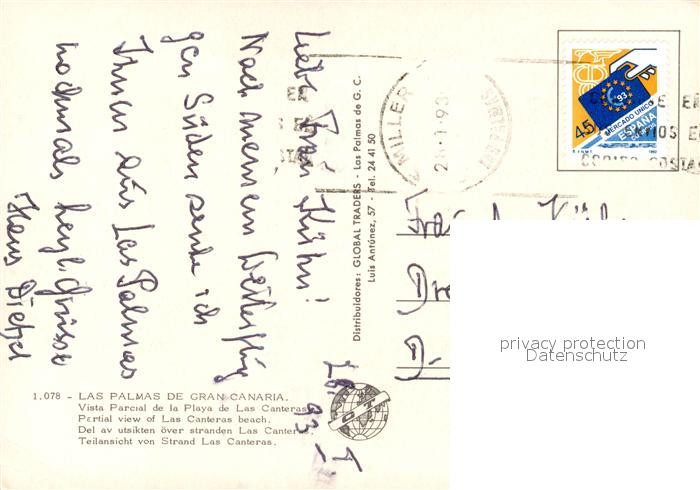 Liebe Frau Kühn!
Nach meinem Weiterflug
gen Süden sende ich
Ihnen aus Las Palmas
nochmals herzl. Grüsse
Hans Dietzel
Distribuidores: GLOBAL TRADERS - Las Palmas de G. C.
Luis Antúnez, 57 - Tel. 24 41 50
MILLER
93
45
93
MERCADO UNICO
ESPAÑA
CORREOS
1992
Frau
privacy protection
Datenschutz
1.078 - LAS PALMAS DE GRAN CANARIA.
Vista Parcial de la Playa de Las Canteras
Partial view of Las Canteras beach.
Del av utsikten över stranden Las Canteras.
Teilansicht von Strand Las Canteras.